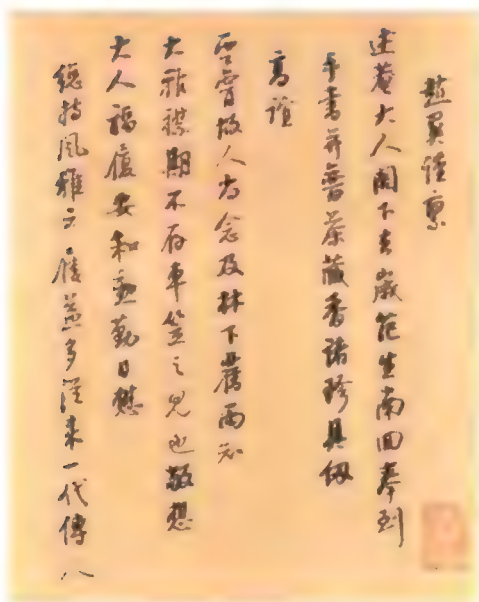 趙翼謹稟
述菴大人閣下去歲范生南回奉到
手書并普茶藏香諸珍具仞
高誼
雲霄故人尚念及林下舊雨知
大雅襟期不存車笠之見也敬想
大人福履安和勳勤日懋
總持風雅益多從來一代傳